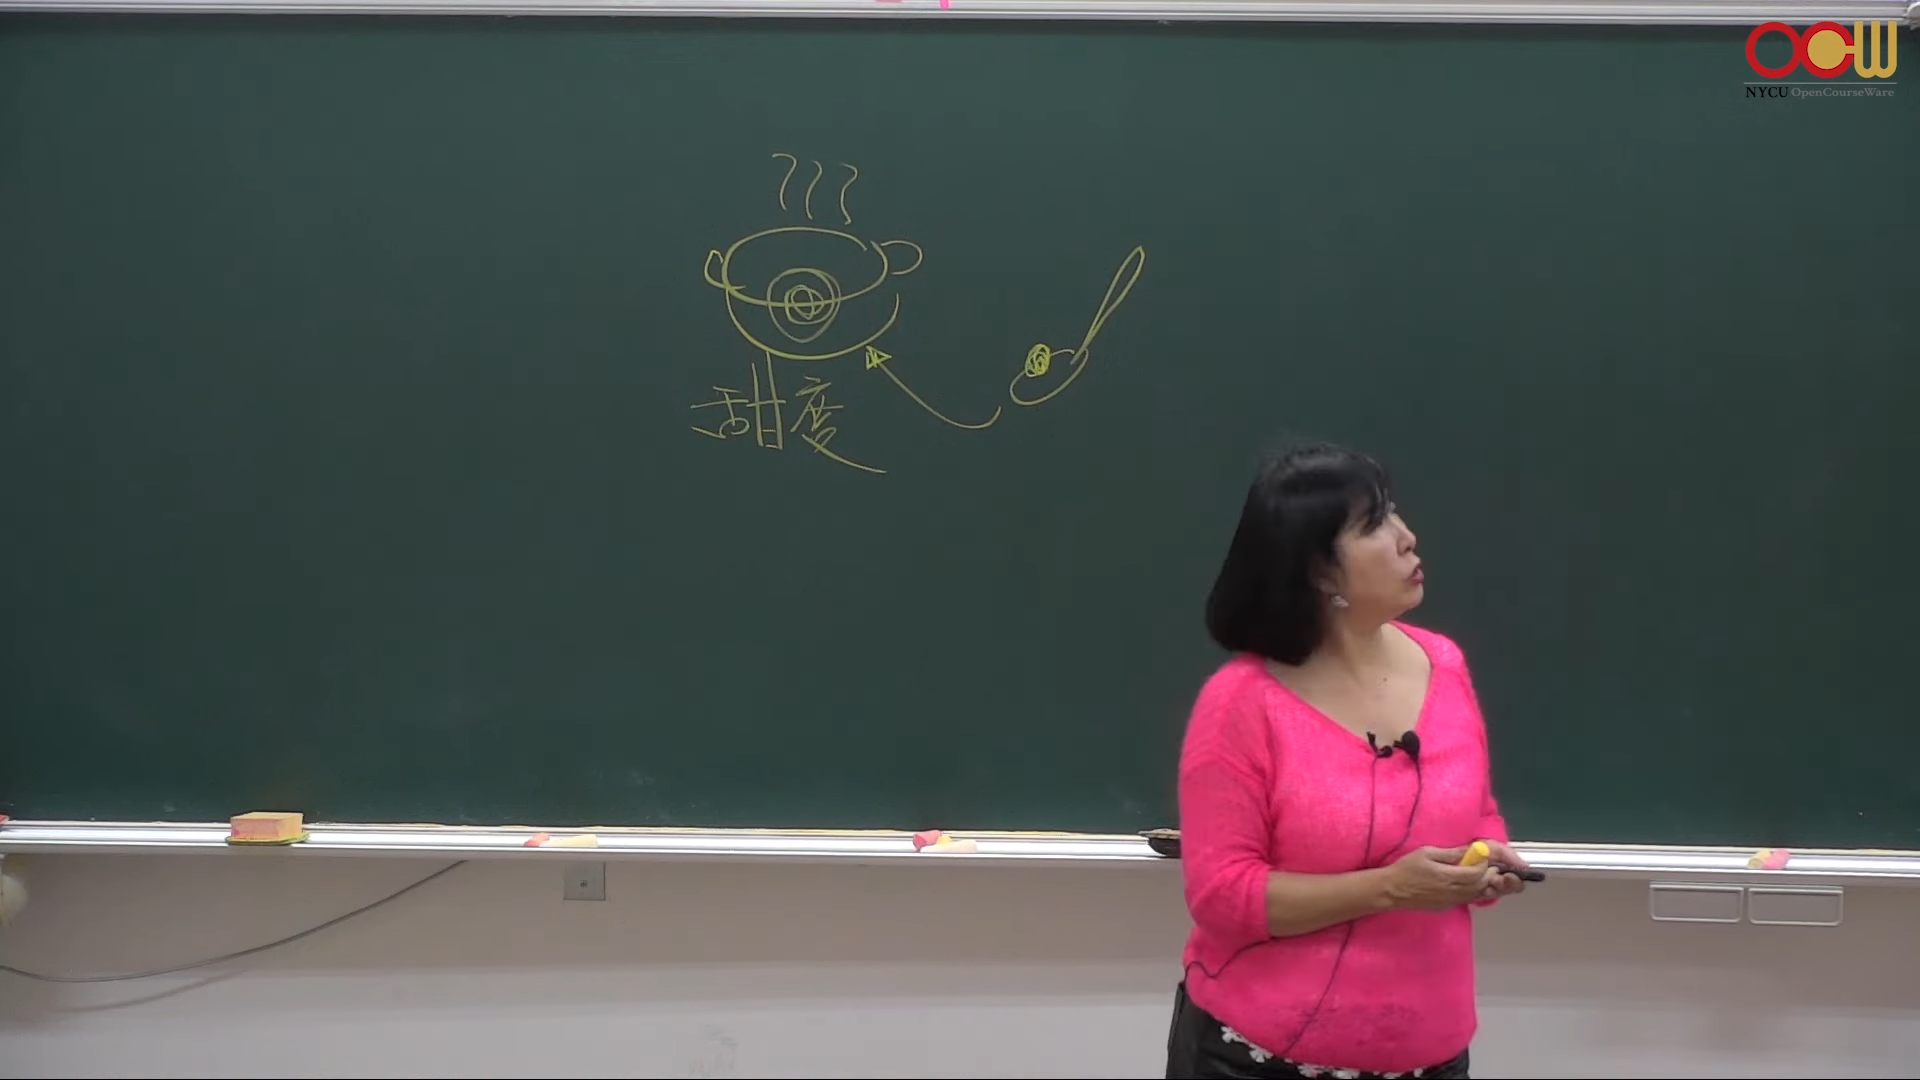 OCW
NYCU OpenCourseWare
甜度